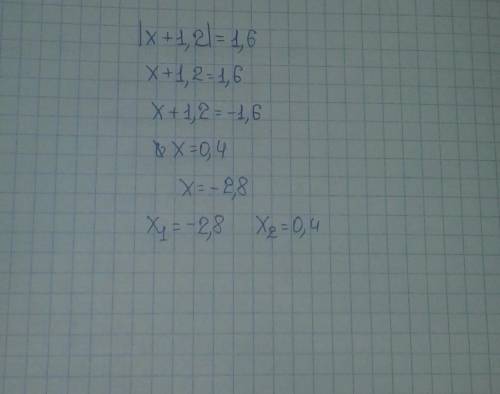 |x+1,2|=1,6
x+1,2=1,6
x+1,2=-1,6
x=0,4
x=-2,8
x₁=-2,8 x₂=0,4